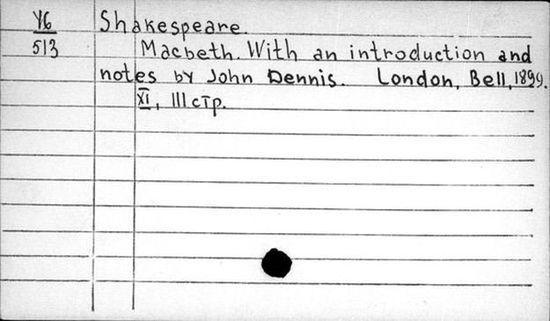 V6 Shakespeare.
513 Macbeth. With an introduction and
notes by John Dennis. London, Bell, 1899.
XI, 111 стр.